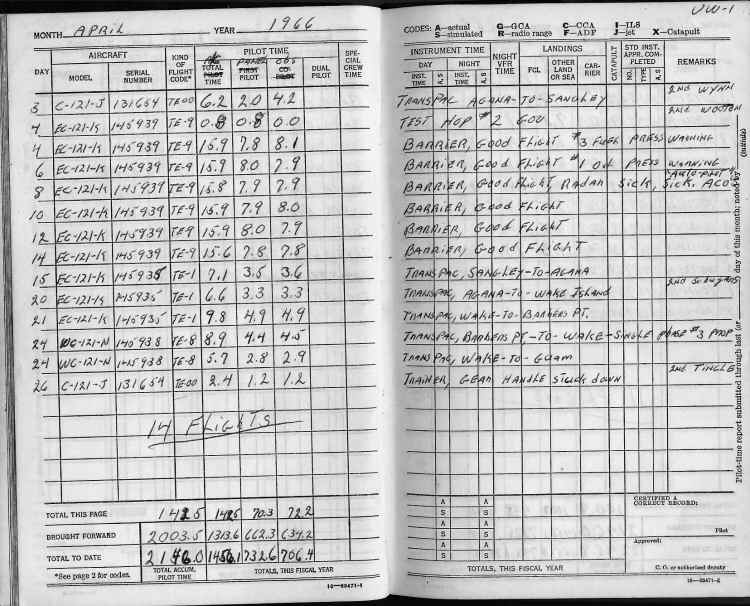 MONTH APRIL YEAR 1966
DAY AIRCRAFT KIND OF FLIGHT CODE* PILOT TIME SPECIAL CREW TIME
MODEL SERIAL NUMBER TOTAL PILOT TIME FIRST PILOT CO-PILOT DUAL PILOT
3 C-121-J 131654 TE00 6.2 2.0 4.2
4 EC-121-K 145939 TE-9 0.8 0.8 0.0
4 EC-121-K 145939 TE-9 15.9 7.8 8.1
6 EC-121-K 145939 TE-9 15.9 8.0 7.9
8 EC-121-K 145939 TE-9 15.8 7.9 7.9
10 EC-121-K 145939 TE-9 15.9 7.9 8.0
12 EC-121-K 145939 TE-9 15.9 8.0 7.9
14 EC-121-K 145939 TE-9 15.6 7.8 7.8
15 EC-121-K 145935 TE-1 7.1 3.5 3.6
20 EC-121-K 145935 TE-1 6.6 3.3 3.3
21 EC-121-K 145935 TE-1 9.8 4.9 4.9
24 WC-121-N 145938 TE-8 8.9 4.4 4.5
24 WC-121-N 145938 TE-8 5.7 2.8 2.9
26 C-121-J 131654 TE00 2.4 1.2 1.2
14 FLIGHTS
TOTAL THIS PAGE 142.5 142.5 70.3 72.2
BROUGHT FORWARD 2003.5 1313.6 662.3 634.2
TOTAL TO DATE 2146.0 1456.1 732.6 706.4
*See page 2 for codes. TOTAL ACCUM. PILOT TIME TOTALS, THIS FISCAL YEAR
16—69471-1
VW-1
CODES: A—actual G—GCA C—CCA I—ILS
S—simulated R—radio range F—ADF J—jet X—Catapult
INSTRUMENT TIME NIGHT VFR TIME LANDINGS CATAPULT STD INST. APPR. COMPLETED REMARKS
DAY NIGHT FCL OTHER LAND OR SEA CARRIER NO. TYPE A, S
INST. TIME A, S INST. TIME A, S
2ND WYNN
TRANSPAC AGANA-TO-SANGLEY
2ND WOOTON
TEST HOP #2 GOV
BARRIER, GOOD FLIGHT #3 FUEL PRESS WARNING
BARRIER, GOOD FLIGHT #1 OIL PRESS WARNING
BARRIER, GOOD FLIGHT, RADAR SICK, (AUTO-PILOT) SICK. ACOS
BARRIER, GOOD FLIGHT
BARRIER, GOOD FLIGHT
BARRIER, GOOD FLIGHT
TRANSPAC, SANGLEY-TO-AGANA
TRANSPAC, AGANA-TO-WAKE ISLAND
TRANSPAC, WAKE-TO-BARBERS PT.
TRANSPAC, BARBERS PT.-TO-WAKE-SINGLE PHASE #3 PROP
TRANSPAC, WAKE-TO-GUAM
2ND TINGLE
TRAINER, GEAR HANDLE STUCK DOWN
A A
S S
A A
S S
A A
S S
CERTIFIED A CORRECT RECORD:
Pilot
Approved:
TOTALS, THIS FISCAL YEAR
C. O. or authorized deputy
16—69471-2
Pilot-time report submitted through last (or day of this month; noted by (initials)